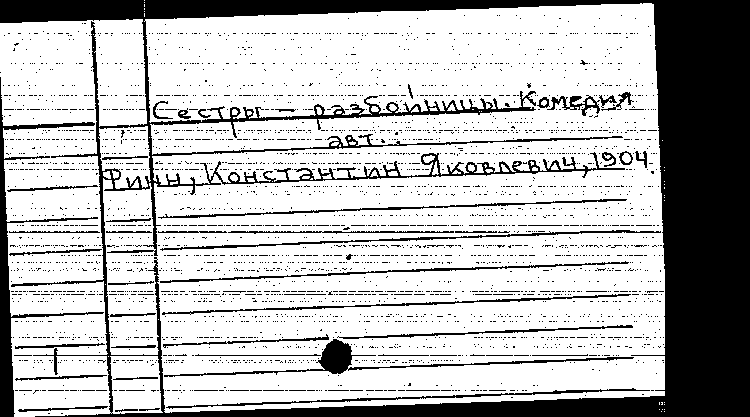 Сестры – разбойницы. Комедия
авт.:
Финн, Константин Яковлевич, 1904.